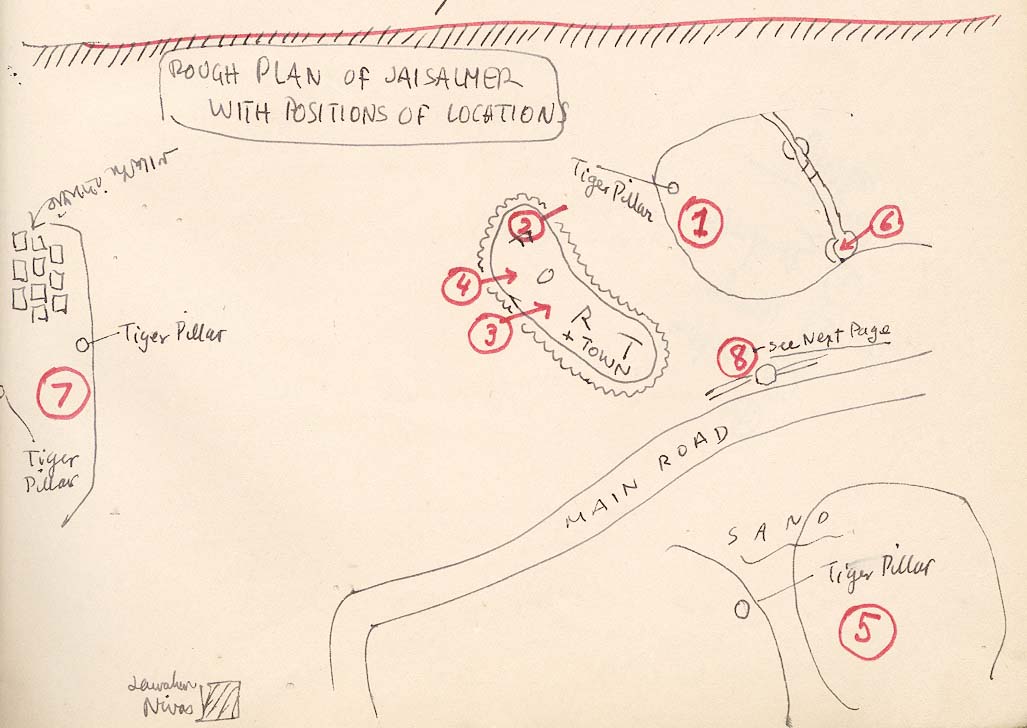 ROUGH PLAN OF JAISALMER
WITH POSITIONS OF LOCATIONS
Tiger Pillar
1
2
6
4
3
F O R T
+ TOWN
8
see Next Page
Tiger Pillar
7
Tiger
Pillar
MAIN ROAD
SAND
Tiger Pillar
5
Jawahar
Nivas